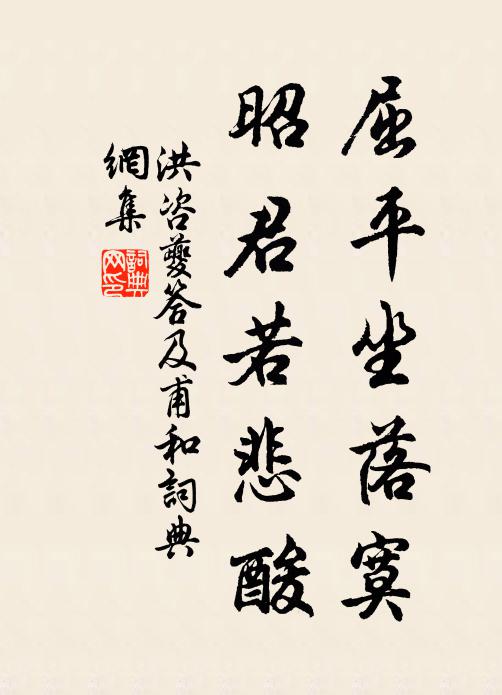 屈平坐落寞
昭君若悲酸
洪咨夔答及甫和詞典
網集
詞典網印